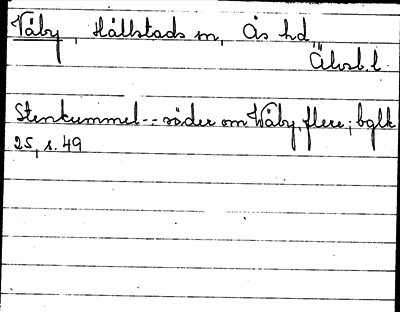 Våby, Hällstads sn, Ås hd,
Älvsb. l.
Stenkummel -- söder om Wåby, flere; bglk
25, s. 49